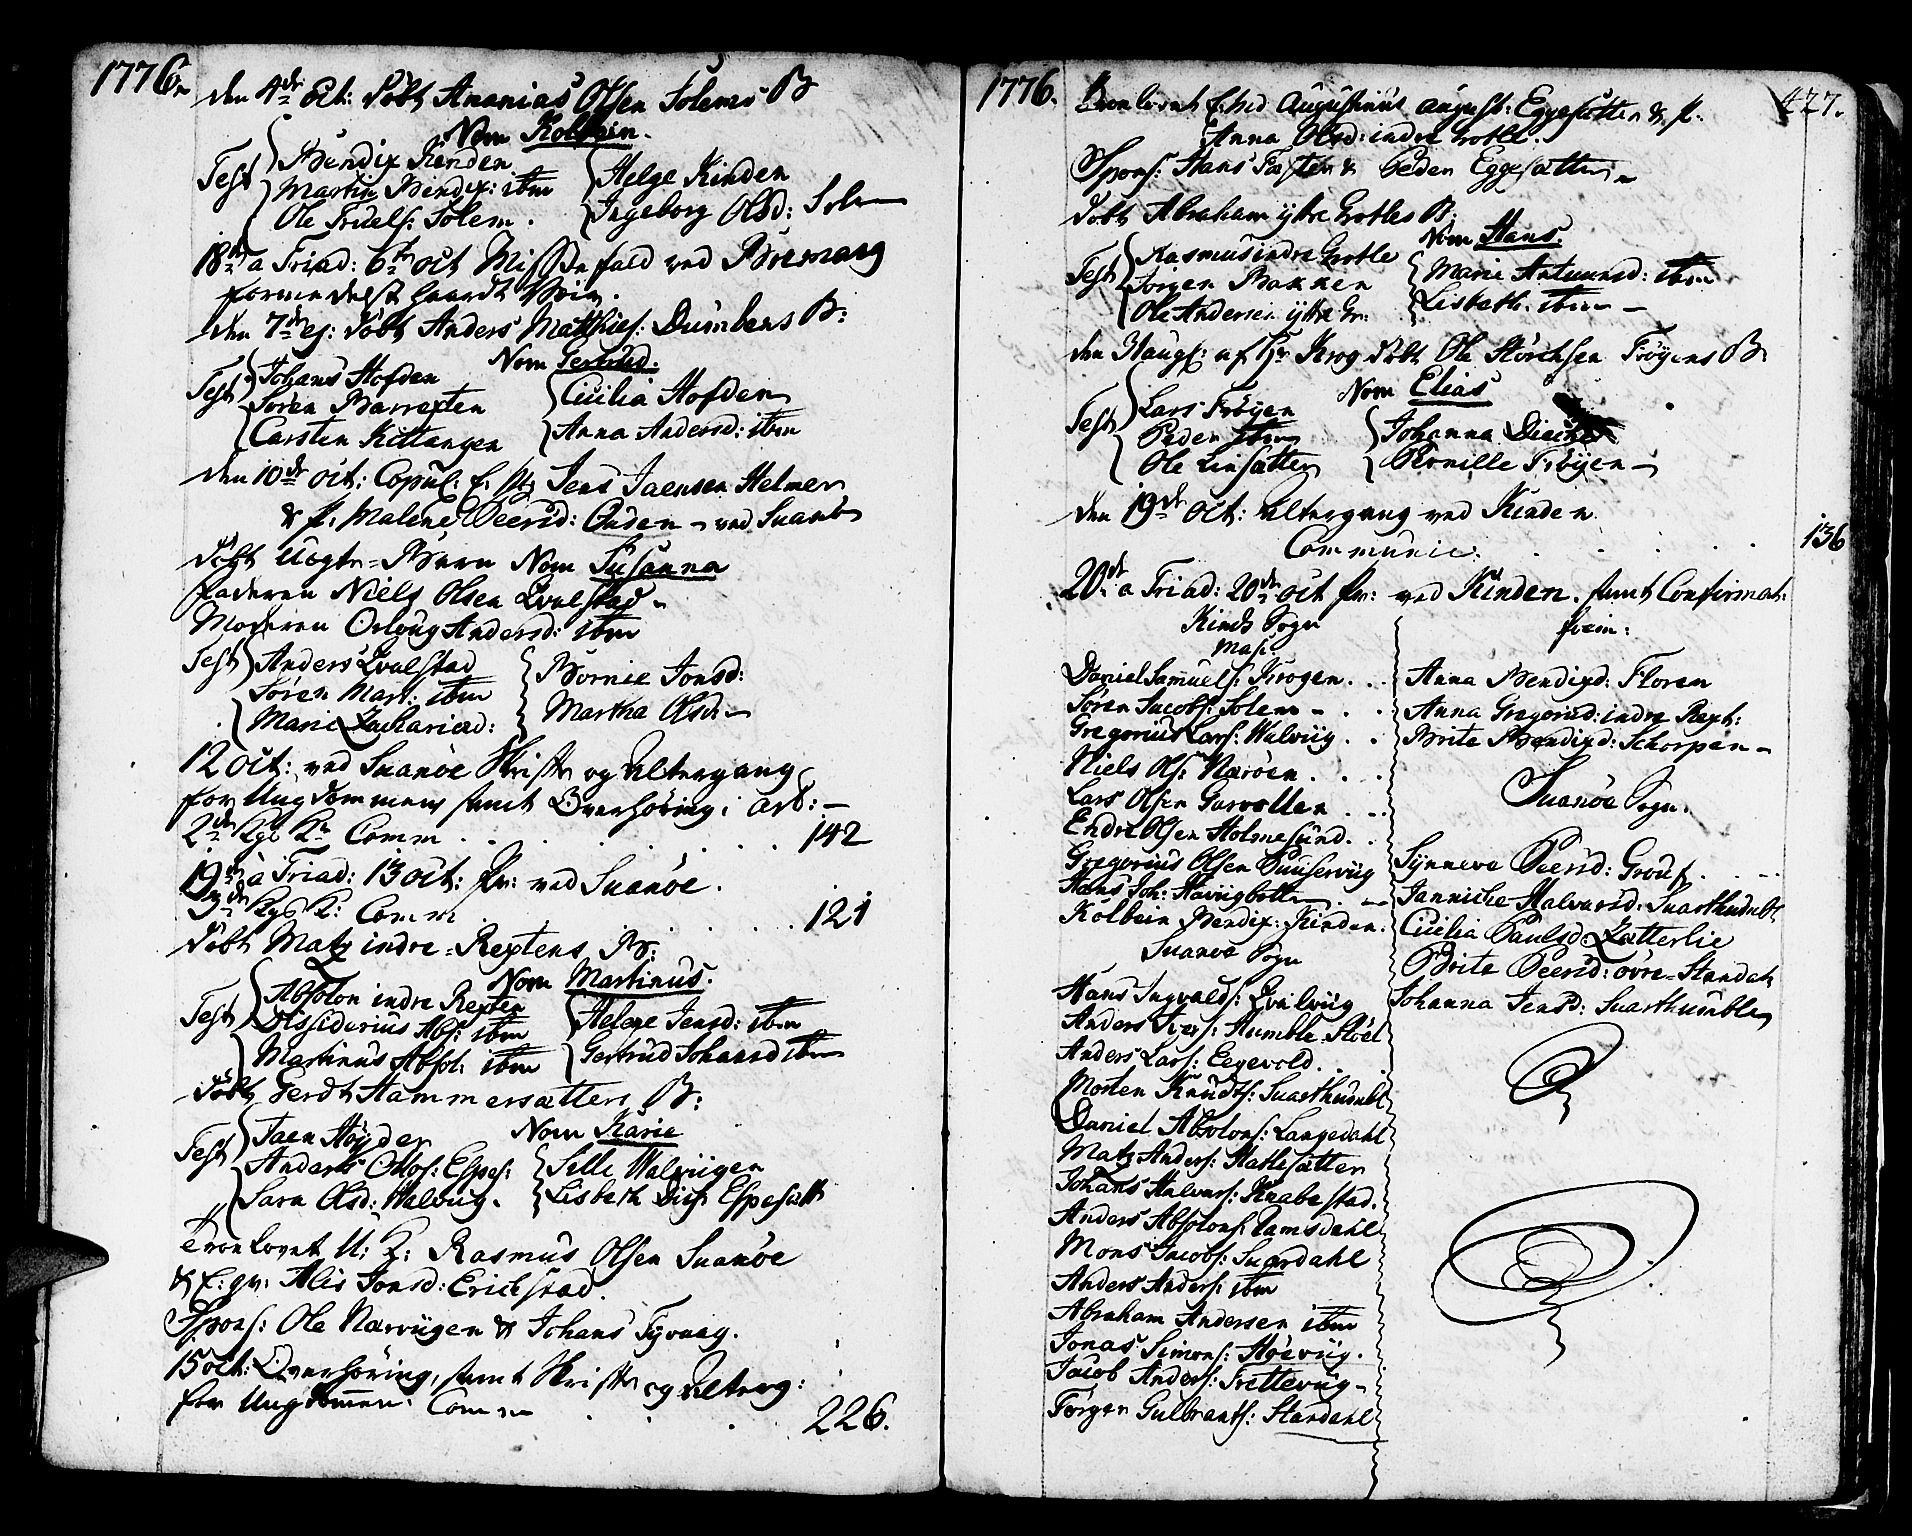 1776.
den 4de Oct: døbt Ananias Olsen Solems B
Nom Kolbein.
Test Bendix Kinden
Martin Bendix: ibm
Ole Fridels: Solem.
Helge Kinden
Ingeborg Olsd: Solem
18de a Triad: 6te Oct Messefald ved Bremang
formedelst haardt Veir.
den 7de ej: døbt Anders Matthies: Dumbens B:
Nom Gertrud.
Test Johans Hofden
Søren Barrexten
Carsten Kittangen
Cicilia Hofden
Anna Andersd: ibm
den 10de Oct: Copul: Jens Jaensen Helmen
& p. Malene Peersd: Önden ved Suanö
døbt Uægte-Barn Nom Susanna
faderen Niels Olsen Qvalstad
Moderen Orloug Andersd: ibm
Test Anders Qvalstad
Søren Mart: ibm
Marie Zachariæd:
Bornie Jonsd:
Martha Olsd:
12 Oct: ved Suanöe Skrifte og Altergang
for Ungdommen samt Overhøring i
Comm . . . 142
19de a Triad: 13 Oct: Pr: ved Suanöe.
Comm . . . 121
døbt Matz indre-Rextens B:
Nom Martinus.
Test Absolon indre Rexten
Dissiderius Abs: ibm
Martinus Absol: ibm
Helene Jensd: ibm
Gertrud Johansd ibm
døbt Gerdt Hammersætters B:
Nom Karie
Test Jaen Høyder
Anders Ottos: Espes:
Sara Olsd: Walvug.
Sille Walvugen
Lisbeth Dich Espesætt
Trolovet U: K: Rasmus Olsen Suanöe
& E: qv: Alis Jonsd: Erichstad.
Spons: Ole Narvugen & Johans Tyvaag.
15 Oct: Overhøring, samt Skrifte og Alterg:
for Ungdommen. Comm . . . 226.
1776.
427.
Trolovet Augustinus August: Eggesætter & p.
Anna Olsd: indre Grotle.
Spons: Hans Fasten & Peder Eggesætter
døbt Abraham ytre Grotles B:
Nom Hans.
Test Rasmus indre Grotle
Jørgen Bakken
Ole Andersen ytre Gr:
Marie Antumsd: ibm
Lisbeth ibm
af Hr Krog døbt Ole Störchsen Frøyens B
Nom Elias
Test Lars Frøyen
Peder ibm
Ole Linsætter
Johanna
Pernille Frøyen
den 19de Oct: Altergang ved Kinden
Communic: . . . 136
20de a Triad: 20de Oct Pr: ved Kinden. samt Confirmat:
Kinds Sogn
Mas:
Daniel Samuels: Krogen
Søren Jacobs: Solem
Gregorius Lars: Walvug
Niels Ols: Narøen
Lars Olsen Gurvollen
Endre Olsen Holmesund
Gregorius Olsen
Hans Joh: Havigbotten
Kolbein Bendix: Kinden.
Suanöe Sogn
Hans Ingvalds: Qvalvug
Anders Ivers: Humble Støel
Anders Lars: Eegevold.
Mosten Knudts: Suarthumbl
Daniel Absolons: Langedahl
Matz Anders: Hatlesætter
Johans Halvars: Knabestad.
Anders Absolons: Ramsdahl
Mons Jacobs: Suardahl
Anders Anders: ibm
Abraham Andersen ibm
Jonas Simons: Høevug.
Jacob Anders: Frettevug
Jørgen Gulbrants: Standahl
fœm:
Anna Bendixd: Floren
Anna Gregorsd: indre Rext:
Brite Bendixd: Schorpen
Suanöe Sogn.
Synneve Peersd: Grouf
Janniche Halvarsd: Suarthumbl
Cicilia Paulsd: Zætterlie
Brite Peersd: øvre-Standahl
Johanna Jensd: Suarthumblen